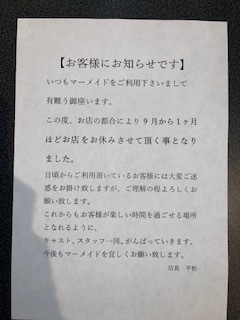 【お客様にお知らせです】
いつもマーメイドをご利用下さいまして
有難う御座います。
この度、お店の都合により9月から1ヶ月
ほどお店をお休みさせて頂く事となり
ました。
日頃からご利用頂いているお客様には大変ご迷
惑をお掛け致しますが、ご理解の程よろしくお
願い致します。
これからもお客様が楽しい時間を過ごせる場所
となれるように、
キャスト、スタッフ一同、がんばっていきます。
今後もマーメイドを宜しくお願い致します。
店長 平松